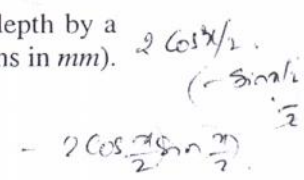 depth by a
ns in mm).
2 Cos x/2 .
(- Sin x/2
. 1/2
- 2 Cos x/2 Sin x/2